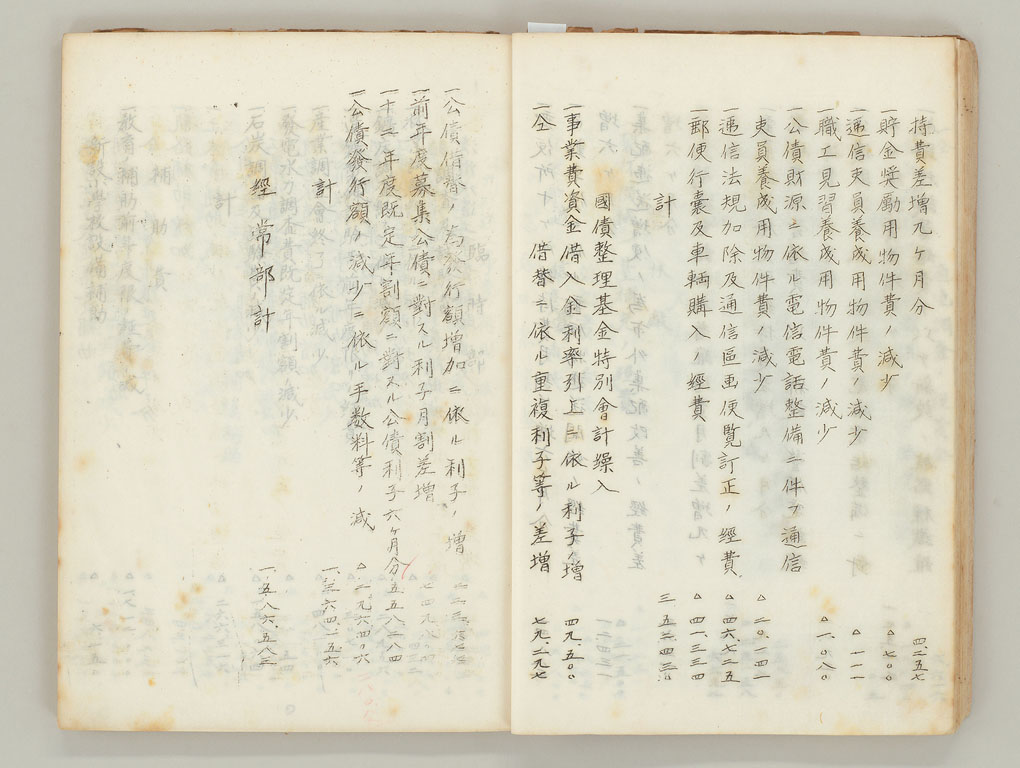 持費差增九ヶ月分 四、二五七
一貯金奨勵用物件費ノ減少 △七〇〇
一逓信吏員養成用物件費ノ減少 △一一一
一職工見習養成用物件費ノ減少 △一、〇八〇
一公債財源ニ依ル電信電話整備ニ伴フ通信
吏員養成用物件費ノ減少 △二〇、一四一
一逓信法規加除及通信區画便覧訂正ノ經費 △四六、七二五
一郵便行嚢及車輌購入ノ經費 △四一、三三四
計 三、五二、四三〇
國債整理基金特別會計繰入
一事業費資金借入金利率引上ニ依ル利子ノ增 四九、五〇〇
一仝 借替ニ依ル重複利子等ノ差增 七九、二九七
一公債借替ノ為發行額增加ニ依ル利子ノ增
一前年度募集公債ニ對スル利子月割差增
一十二年度既定年割額ニ對スル公債利子六ヶ月分 五五八、二八四
一公債發行額ノ減少ニ依ル手数料等ノ減 △二九、六四〇、六
計 一、三六四、一五六
經常部計 一、五八六、五八三